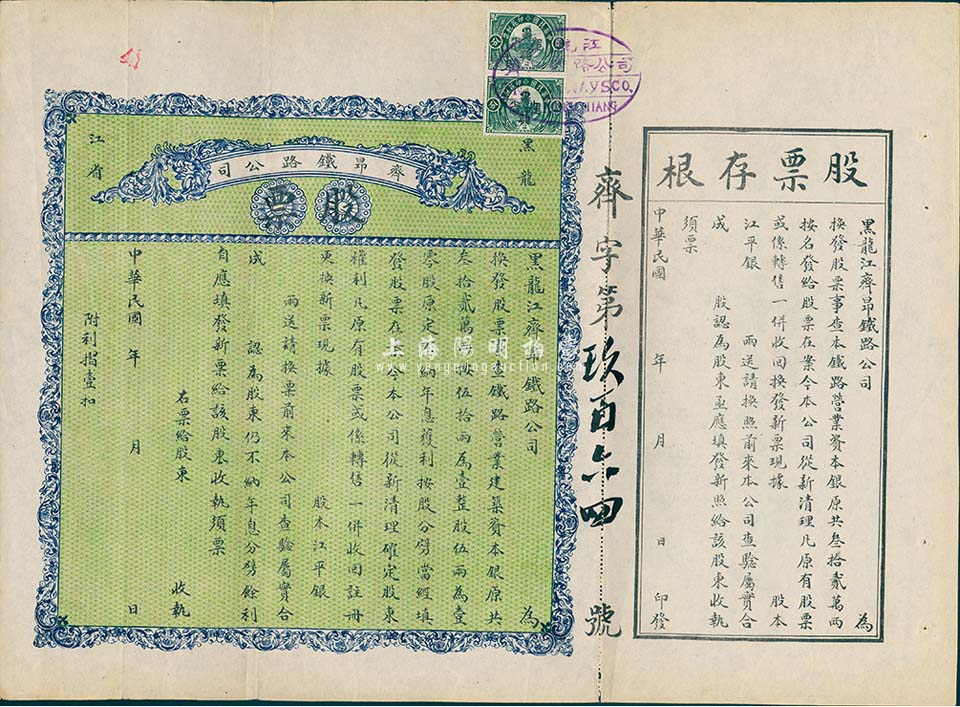 股票存根
黑龍江齊昂鐵路公司 為
換發股票事查本鐵路營業資本銀原共叁拾貳萬兩
按名發給股票在案今本公司從新清理凡原有股票
或係轉售一併收回換發新票現據 股本
江平銀 兩送請換照前來本公司查驗屬實合
成 股認為股東亟應填發新照給該股東收執
須票
中華民國 年 月 日 印發
齊字第玖百六四號
江
路公司
AYSCO.
黑龍
江省
齊昂鐵路公司
股票
黑龍江齊昂鐵路公司 為
換發股票事查鐵路營業建築資本銀原共
叁拾貳萬兩以伍拾兩為壹整股伍兩為壹
零股原定不納年息獲利按股分劈當經填
發股票在案今本公司從新清理確定股東
權利凡原有股票或係轉售一併收回註冊
更換新票現據 股本江平銀
兩送請換票前來本公司查驗屬實合
成 認為股東仍不納年息分劈餘利
自應填發新票給該股東收執須票
右票給股東 收執
中華民國 年 月 日
附利摺壹扣
上海陽明拍
www.yangmingauction.com